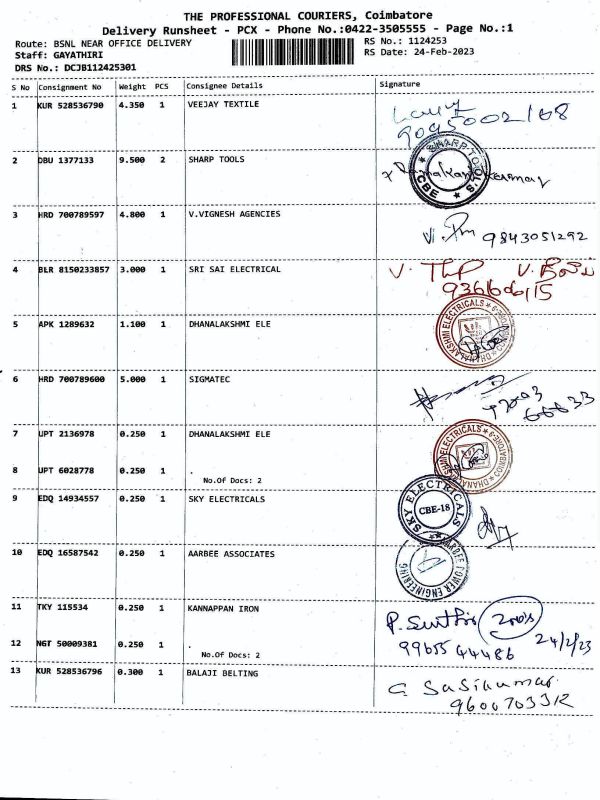 THE PROFESSIONAL COURIERS, Coimbatore
Delivery Runsheet - PCX - Phone No.:0422-3505555 - Page No.:1
Route: BSNL NEAR OFFICE DELIVERY RS No.: 1124253
Staff: GAYATHIRI RS Date: 24-Feb-2023
DRS No.: DCJB112425301
S No Consignment No Weight PCS Consignee Details Signature
1 KUR 528536790 4.350 1 VEEJAY TEXTILE
2 DBU 1377133 9.500 2 SHARP TOOLS
SHARP TOOLS CBE
3 HRD 700789597 4.800 1 V.VIGNESH AGENCIES
9843051292
4 BLR 8150233857 3.000 1 SRI SAI ELECTRICAL
5 APK 1289632 1.100 1 DHANALAKSHMI ELE
DHANALAKSHMI ELECTRICALS
6 HRD 700789600 5.000 1 SIGMATEC
7 UPT 2136978 0.250 1 DHANALAKSHMI ELE
8 UPT 6028778 0.250 1 .
No.Of Docs: 2
9 EDQ 14934557 0.250 1 SKY ELECTRICALS
SKY ELECTRICALS CBE-18
10 EDQ 16587542 0.250 1 AARBEE ASSOCIATES
AARBEE POWER ENGINEERING
11 TKY 115534 0.250 1 KANNAPPAN IRON
12 NGT 50009381 0.250 1 .
99655 44486 24/2/23
No.Of Docs: 2
13 KUR 528536796 0.300 1 BALAJI BELTING
G SaSikumar